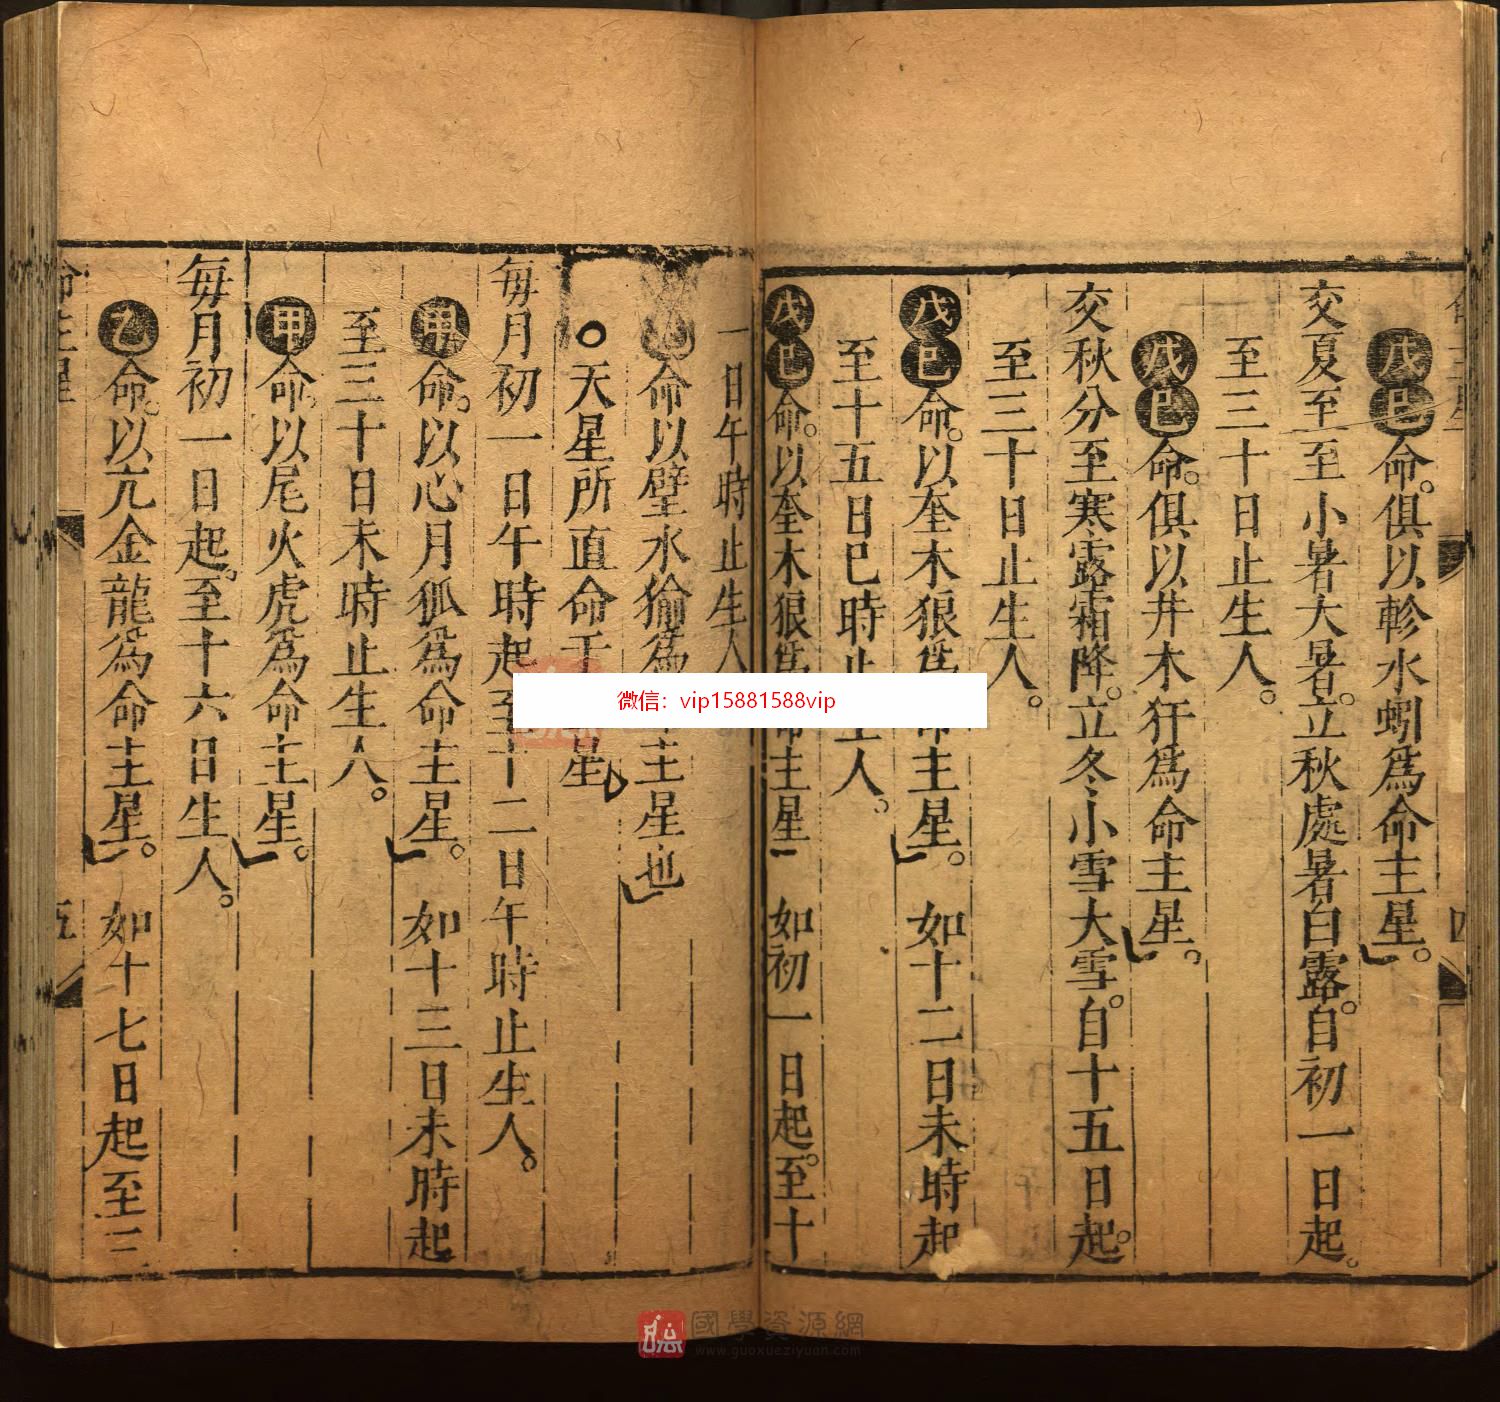 戊巳命。俱以軫水蚓爲命主星。
交夏至至小暑大暑。立秋處暑白露。自初一日起。
至三十日止生人。
戊巳命。俱以井木犴爲命主星。
交秋分至寒露霜降。立冬小雪大雪。自十五日起。
至三十日止生人。
戊巳命。以奎木狼爲命主星。 如十二日未時起
至十五日巳時止生人。
戊巳命。以奎木狼爲命主星 如初一日起。至十
一日午時止生人
命以壁水㺄爲命主星也
○天星所直命干 星
每月初一日午時起至十二日午時止生人。
甲命。以心月狐爲命主星。 如十三日未時起
至三十日未時止生人。
甲命。以尾火虎爲命主星。
每月初一日起。至十六日生人。
乙命。以亢金龍爲命主星。 如十七日起至三
命主星
五
四
微信：vip15881588vip
國學資源網
www.guoxueziyuan.com